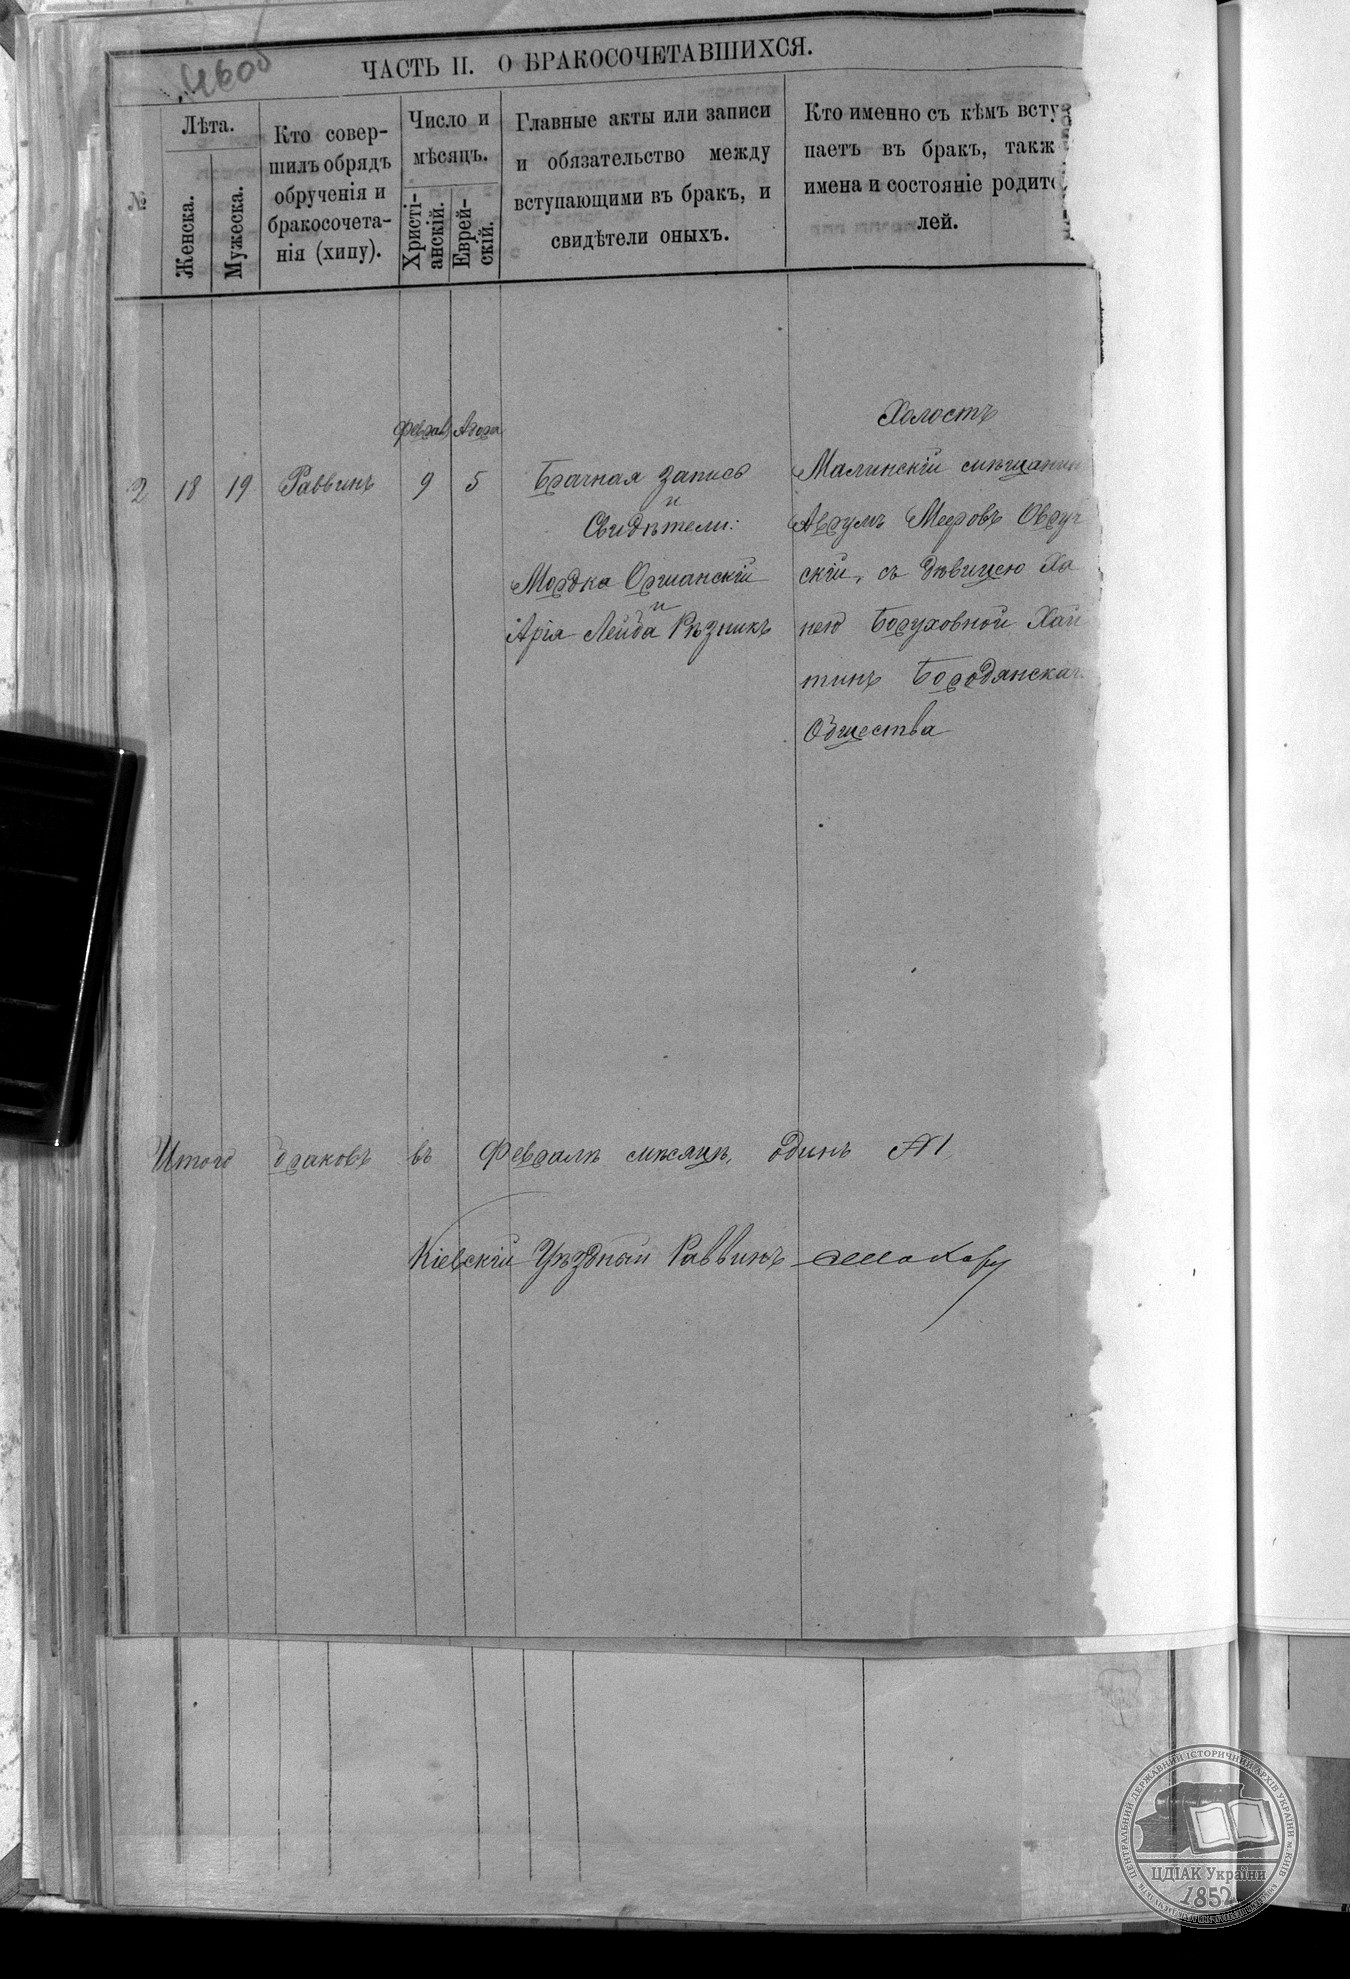 ЧАСТЬ II. О БРАКОСОЧЕТАВШИХСЯ.
№
Лѣта.
Женска.
Мужеска.
Кто совер-
шилъ обрядъ
обрученія и
бракосочета-
нія (хипу).
Число и
мѣсяцъ.
Христі-
анскій.
Еврей-
скій.
Главные акты или записи
и обязательство между
вступающими въ бракъ, и
свидѣтели оныхъ.
Кто именно съ кѣмъ всту
паетъ въ бракъ, такж
имена и состояніе родите
лей.
Феврал Адора
2 18 19 Раввинъ 9 5
Брачная запись
и
Свидѣтели:
Мордка Оршанскій
и
Арія Лейба Рѣзникъ
Холостъ
Малинскій мѣщанин
Аврумъ Мееровъ Овруч
скій, съ дѣвицею Ха
нею Боруховной Хай
тинъ Бородянскаг
Общества
Итого браковъ въ Февралѣ мѣсяцѣ, одинъ №1
Кіевскій Уѣздный Раввинъ
ЦЕНТРАЛЬНИЙ ДЕРЖАВНИЙ ІСТОРИЧНИЙ АРХІВ УКРАЇНИ м. КИЇВ
ЦДІАК України
1852